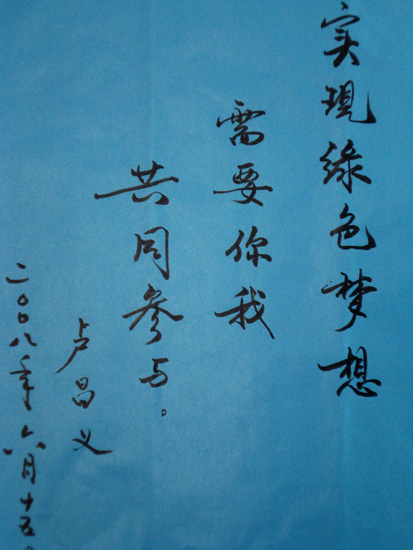 实現綠色梦想
需要你我
共同参与。
卢昌义
二〇〇八年六月十五日